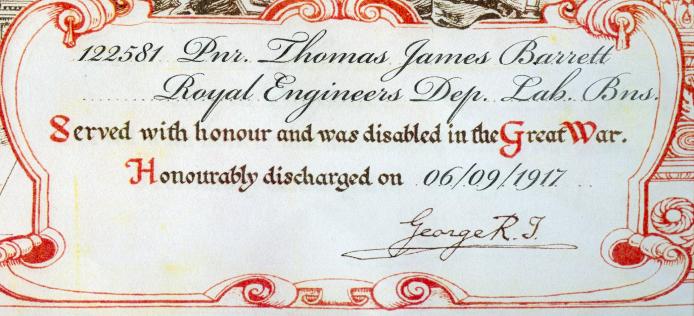 122581 Pnr. Thomas James Barrett
Royal Engineers Dep. Lab. Bns.
Served with honour and was disabled in the Great War.
Honourably discharged on 06/09/1917
George R. I.